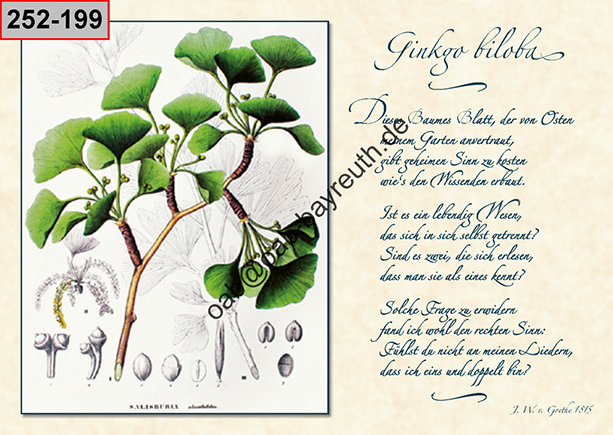 252-199
Ginkgo biloba
Dieses Baumes Blatt, der von Osten
meinem Garten anvertraut,
gibt geheimen Sinn zu kosten
wie's den Wissenden erbaut.
Ist es ein lebendig Wesen,
das sich in sich selbst getrennt?
Sind es zwei, die sich erlesen,
dass man sie als eines kennt?
Solche Frage zu erwidern
fand ich wohl den rechten Sinn:
Fühlst du nicht an meinen Liedern,
dass ich eins und doppelt bin?
J. W. v. Goethe 1815
SALISBURIA adiantifolia.
oak@oak-bayreuth.de